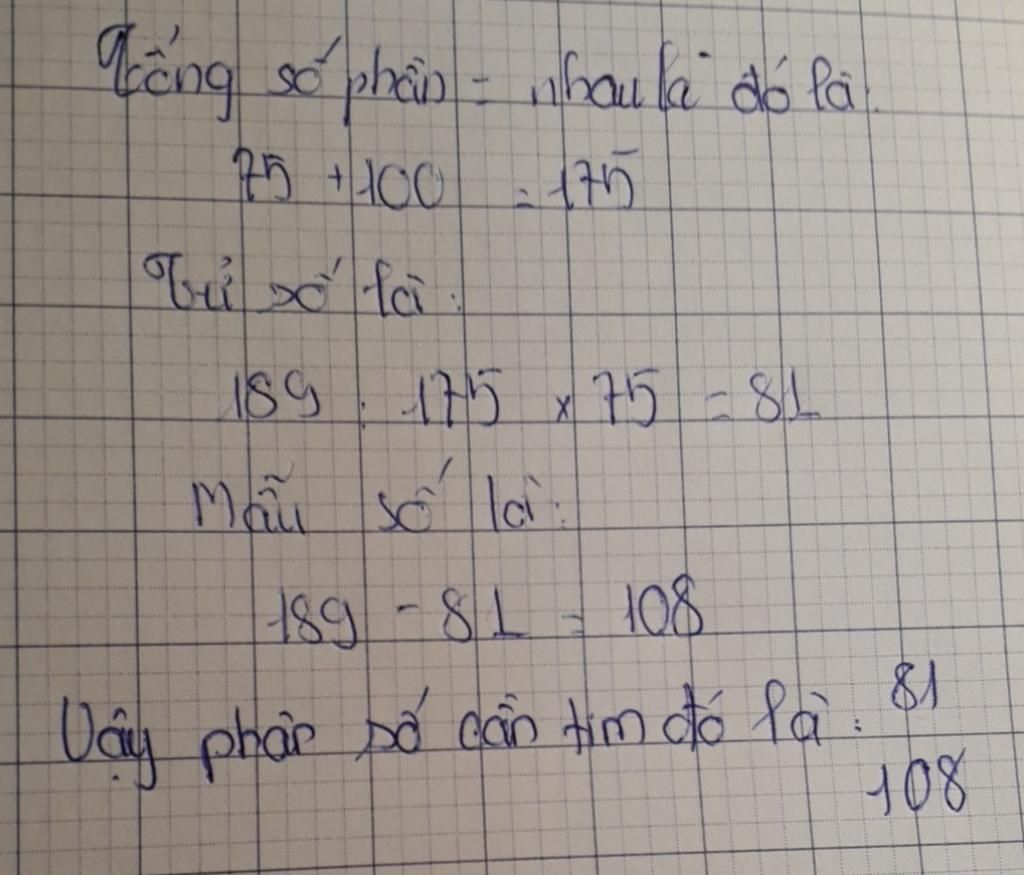 Tổng số phần = nhau là đó là
75 + 100 = 175
Tử số là:
189 : 175 x 75 = 81
Mẫu số là:
189 - 81 = 108
Vậy phân số cần tìm đó là: 81
108